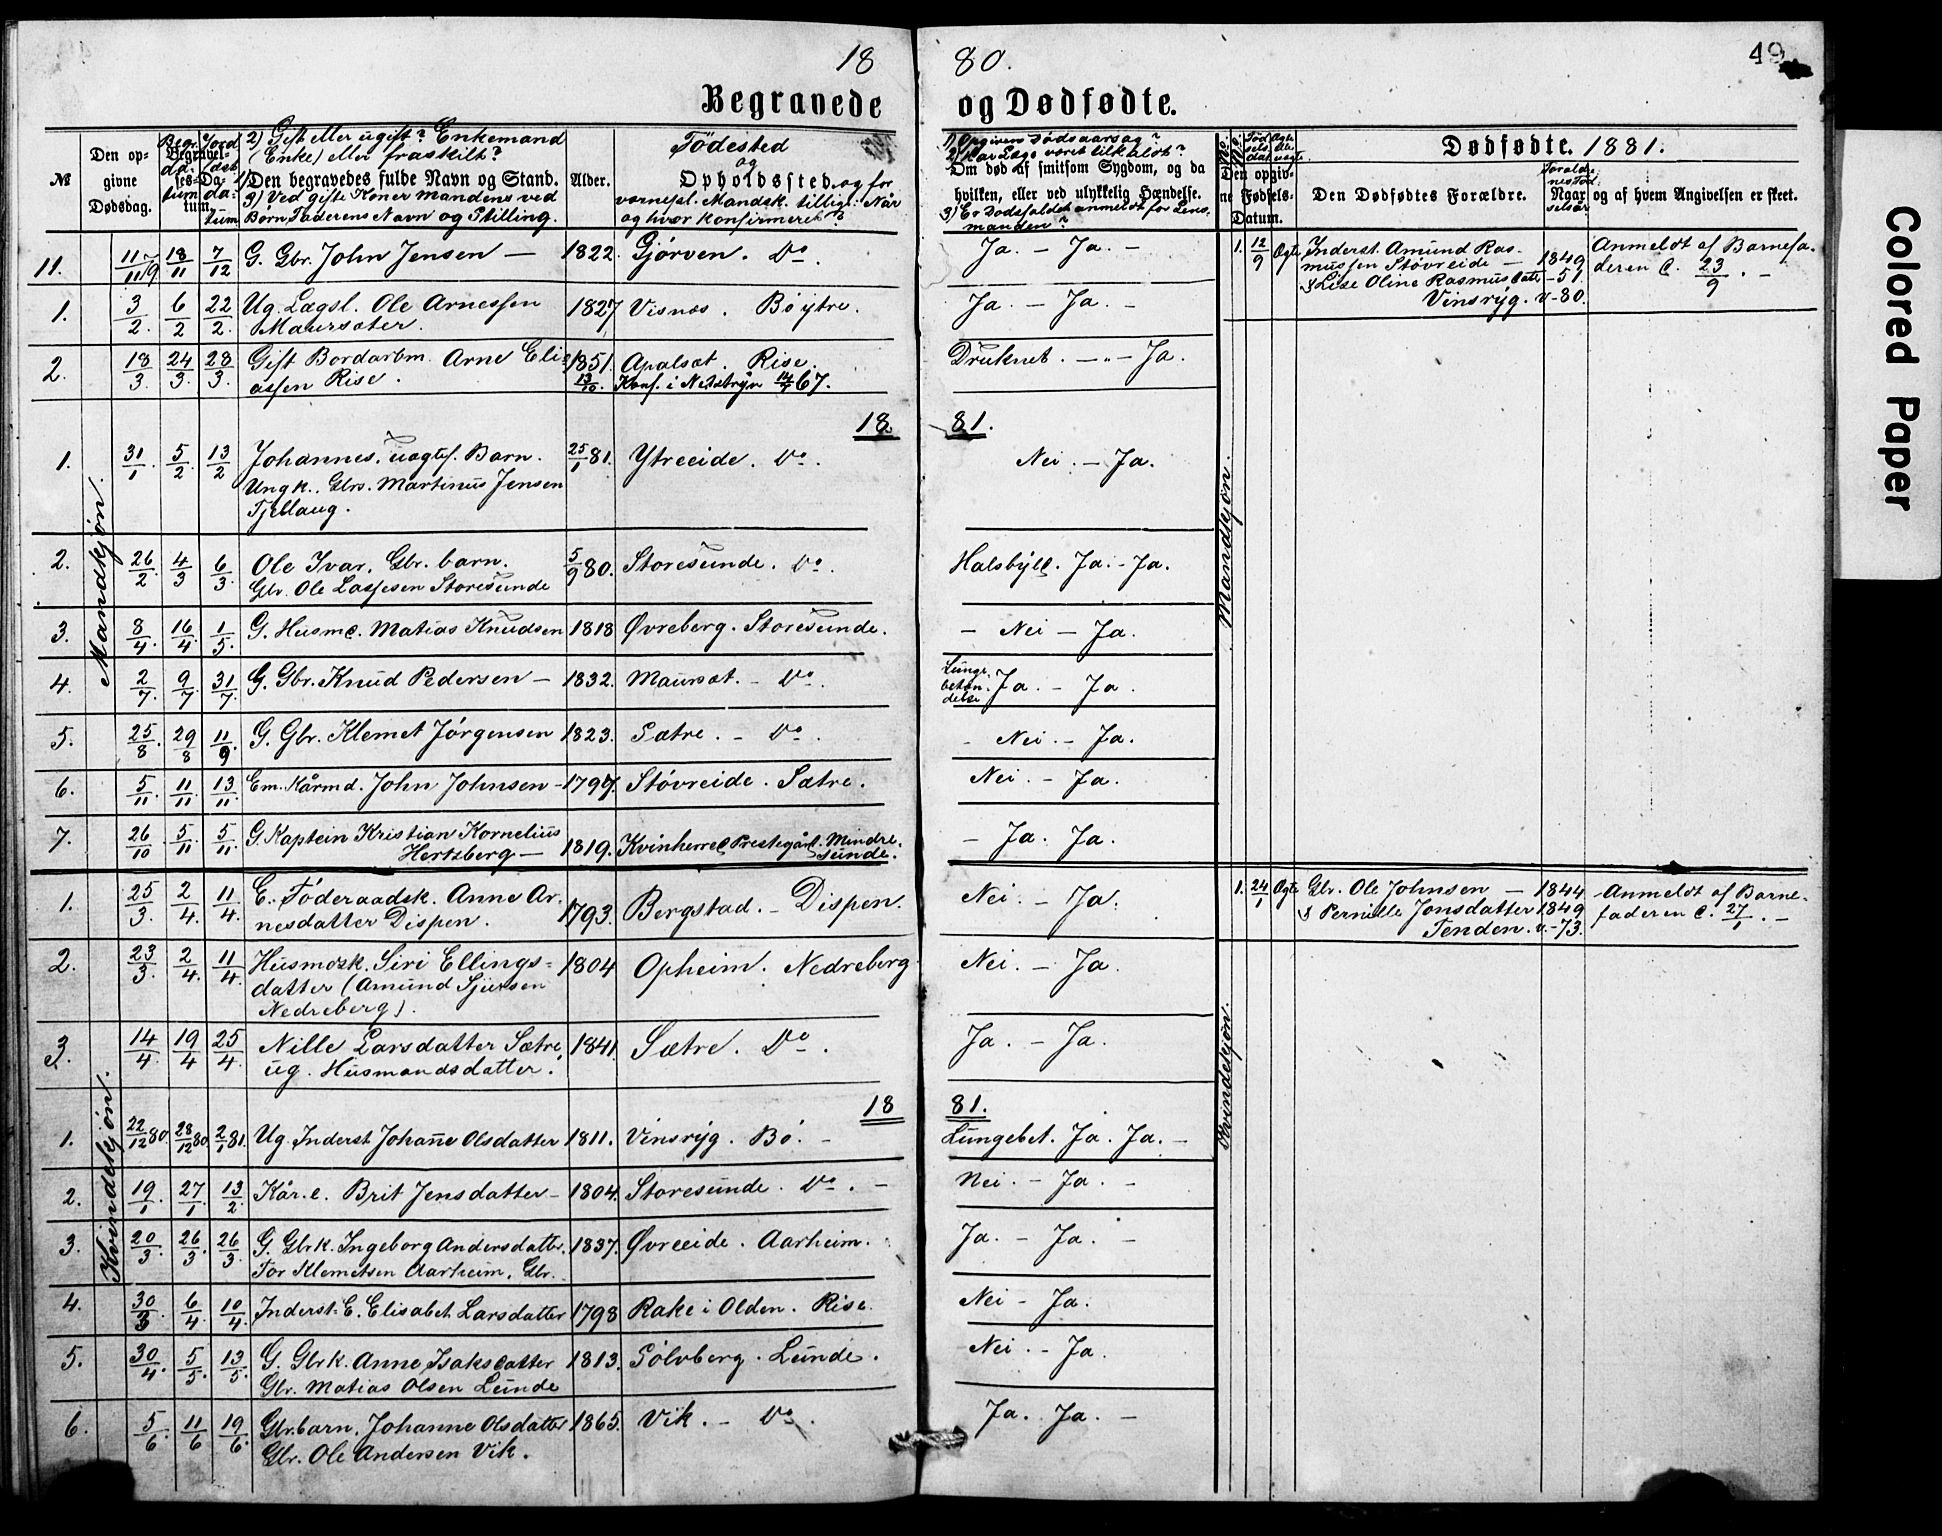 18 80. 49
Begravede og Dødfødte.
№
Den op-
givne
Dødsdag.
Begravel-
ses-Da-
tum.
2) Gift eller ugift? Enkemand
(Enke) eller fraskilt?
1) Den begravedes fulde Navn og Stand.
3) Ved gifte Koner Mandens ved
Børn Faderens Navn og Stilling.
Alder.
Fødested
og
Opholdssted, og for
vernepl. Mandsk. tillige: Når
og hvor konfirmeret?
1) Opgiven Dødsaarsag?
2) Har Læge været tilkaldt?
Om død af smitsom Sygdom, og da
hvilken, eller ved ulykkelig Hændelse.
3) Er Dødsfaldet anmeldt for Lens-
manden?
Den opgiv-
ne Fødsels-
Datum.
Dødfødte. 1881.
Den Dødfødtes Forældre.
Naar og af hvem Angivelsen er skeet.
Mandkjøn.
11. 11/11 79 18/11 7/12 G. Gbr. John Jensen — 1822. Gjørven. Do. Ja. – Ja. –
1. 3/2. 6/2 22/2. Ug. Lægsl. Ole Arnessen
Maursæter.
1827 Visnæs. Bøytre. Ja. – Ja. –
2. 18/3. 24/3. 28/3. Gift Bordarbm. Arne Eli-
assen Rise.
1851. 13/10. Apalsæt. Rise.
Konf. i Nedstryn 14/7 67.
Druknet. – " – Ja.
18 81.
1. 31/1. 5/2. 13/2 Johannes, uægtef. Barn.
Ungk. Gbrs. Martinus Jensen
Tjellaug.
25/1 81. Ytreeide. Do. Nei. – Ja.
2. 26/2. 4/3 6/3. Ole Ivar, Gbr. barn.
Gbr. Ole Lassesen Storesunde
5/9 80. Storesunde. Do. Halsbyld. Ja. – Ja.
3. 8/4. 16/4. 1/5. G. Husmd. Matias Knudsen 1818 Øvreberg. Storesunde. – Nei – Ja.
4. 2/7. 9/7. 31/7. G. Gbr. Knud Pedersen – 1832. Maursæt. – Do. Lunge-
betæn-
delse Ja. – Ja.
5. 25/8. 29/8 11/9. G. Gbr. Klemet Jørgensen 1823. Sætre. – Do. – Nei. – Ja.
6. 5/11. 11/11. 13/11. Em. Kårmd. John Johnsen – 1797. Støvreide. Sætre. Nei. – Ja.
7. 26/10 5/11. 5/11. G. Kaptein Kristian Kornelius
Hertzberg —
1819. Kvinherred Prestegård. Mindre-
sunde.
– Ja. Ja.
Kvindekjøn.
1. 25/3. 2/4. 11/4. E. Føderaadsk. Anne Ar-
nesdatter Dispen.
1793. Bergstad. – Dispen. Nei. – Ja.
2. 23/3. 2/4. 11/4. Husmdsk. Siri Ellings-
datter (Amund Sjursen
Nedreberg).
1804 Opheim. Nedreberg. Nei. – Ja.
3. 14/4. 19/4 25/4. Nille Larsdatter Sætre,
ug. Husmandsdatter.
1841. Sætre. Do. Ja. – Ja.
18 81.
1. 22/12 80. 28/12 80 2/1 81. Ug. Inderst Johanne Olsdatter 1811. Vinsryg. Bø. – Lungebet. Ja. Ja. –
2. 19/1. 27/1. 13/2 Kår.e. Brit Jensdatter – 1804. Storesunde. Do. – Nei. – Ja. –
3. 20/3. 26/3. 26/3. G. Gbrk. Ingeborg Andersdatter.
Tor Klemetsen Aarheim. Gbr.
1837. Øvreeide. Aarheim. Ja. – Ja. –
4. 30/3. 6/4. 10/4. Inderst. E. Elisabet Larsdatter 1798 Rake i Olden. Rise. Nei – Ja.
5. 30/4. 5/5. 13/5. G. Gbrk. Anne Isaksdatter
Gbr. Matias Olsen Lunde
1813. Sølvberg. Lunde. Nei. – Ja.
6. 5/6. 11/6 19/6. Gbr.barn. Johanne Olsdatter
Gbr. Ole Andersen Vik.
1865. Vik. – Do. Ja. Ja. –
Mandkjøn.
1. 12/9 Ægte Inderst. Amund Ras-
mussen Støvreide — 1849
& Lise Oline Rasmusdatter – 51.
Vinsryg. v. – 80.
Anmeldt af Barnefa-
deren d. 23/9. –
Kvindekjøn.
1. 24/1 Ægte Gbr. Ole Johnsen — 1844
& Pernille Jonsdatter 1849
Tenden. v. – 73.
Anmeldt af Barne-
faderen d. 27/1. –
Colored Paper